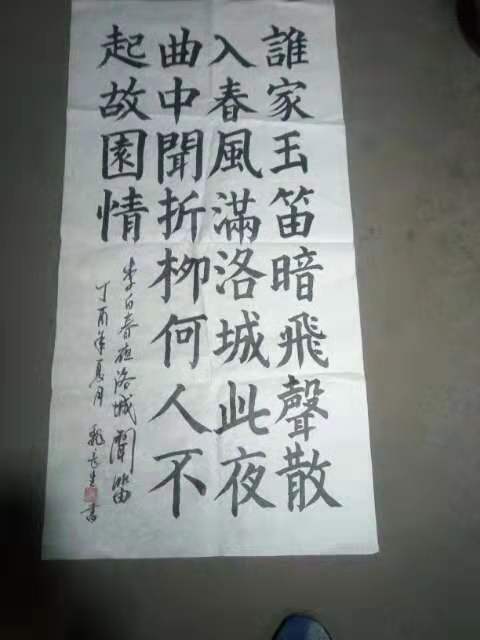 誰家玉笛暗飛聲散
入春風滿洛城此夜
曲中聞折柳何人不
起故園情
李白春夜洛城聞笛
丁酉年夏月 魏长生書